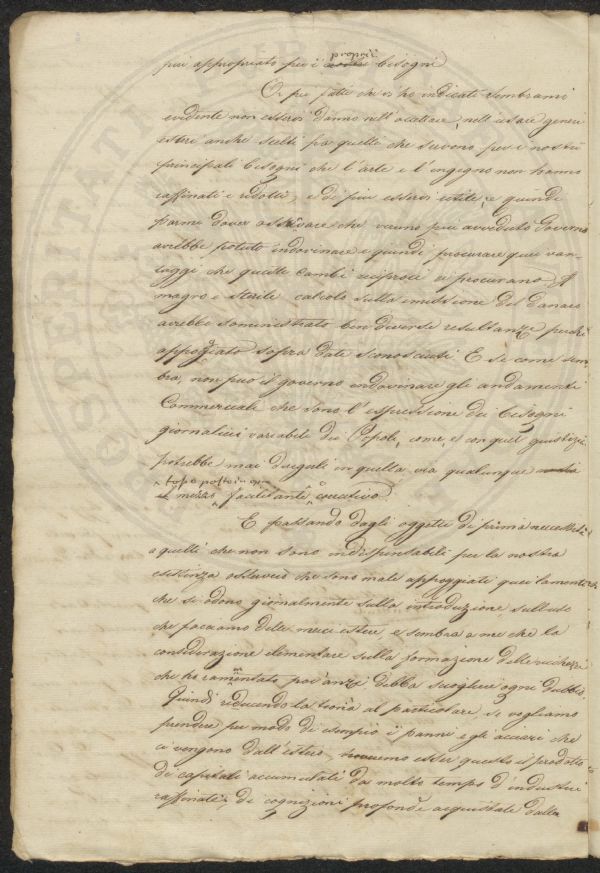 più appropriato per i proprii bisogni
Or pei fatti che vi ho indicati sembrami
evidente non esservi danno nell'accettare, nell'usare generi
esteri anche scelti fra quelli che servono per i nostri
principali bisogni che l'arte e l'ingegno non hanno
raffinati e ridotti, ed di più esservi utile, e quindi
parmi dover osservare che veruno più avveduto Governo
avrebbe potuto indovinare e quindi procurare quei van-
taggi che questi cambi reciproci ci procurano. Il
magro e sterile calcolo sulla emissione del danaro
avrebbe somministrato ben diverse resultanze perchè
appoggiato sopra dati sconosciuti. E se come sem-
bra, non può il governo indovinare gli andamenti
Commerciali che sono l'espressione dei bisogni
giornalieri variabili dei Popoli, come, e con quel giustizia
potrebbe mai in quella via qualunque
e mezzo facilitante o coercitivo.
E passando dagli oggetti di prima necessità
a quelli che non sono indispensabili per la nostra
esistenza osserverò che sono male appoggiati quei lamenti
che si odono giornalmente sulla introduzione, sull'uso
che facciamo delle merci estere, e sembra a me che la
considerazione elimentare sulla formazione delle ricchezze
che ho rammentato poc'anzi debba sciogliere ogni dubbio.
Quindi riducendo la teoria al particolare se vogliamo
prendere per modo di esempio i panni e gli acciari che
ci vengono dall'estero, troveremo esser questo il prodotto
di capitali accumulati da molto tempo d'industrie
raffinate, di cognizioni profonde acquistate dalla